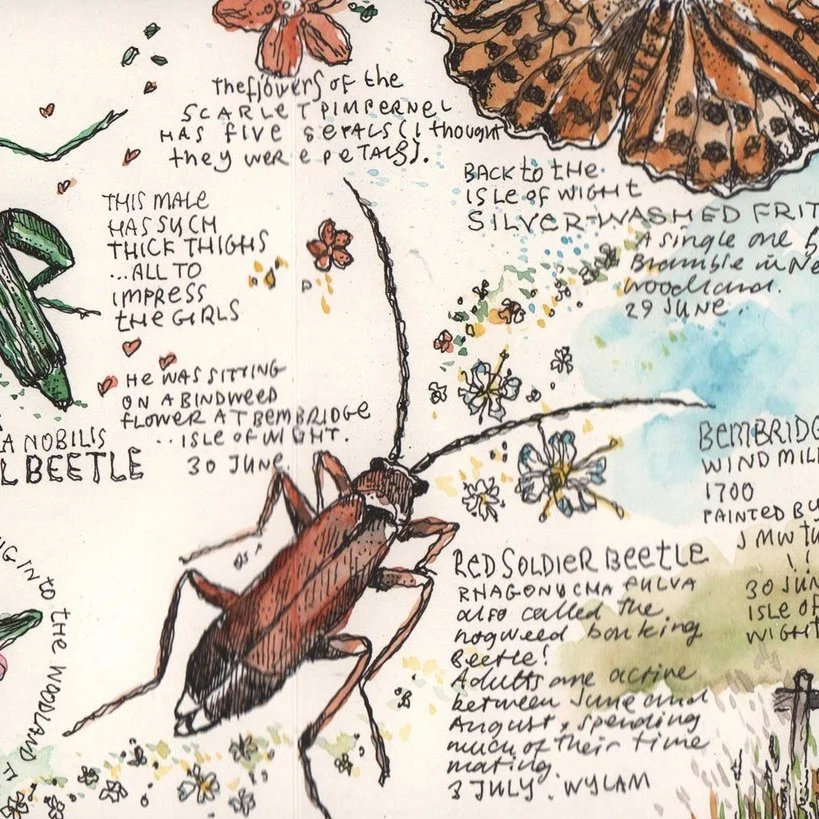 the flowers of the
SCARLET PIMPERNEL
HAS FIVE SEPALS (I thought
they were PETALS).
BACK to tHE
ISLE OF WIGHT
SILVER-WASHED FRIT
A single one
Bramble in Ne
woodland.
29 JUNE.
THIS MALE
HAS SUCH
THICK THIGHS
...ALL TO
IMPRESS
tHE GIRLS
HE WAS SITTING
ON A BINDWEED
FLOWER AT BEMBRIDGE
...ISLE OF WIGHT.
30 JUNE.
A NOBILIS
L BEETLE
BEMBRIDG
WIND MILL
1700
PAINTED BY
J M W TU
!!
30 JUN
ISLE OF
WIGHT
RED SOLDIER BEETLE
RHAGONYCHA FULVA
also called the
hogweed bonking
Beetle!
Adults are active
between June and
August, spending
much of their time
mating.
3 JULY. WYLAM
G INTO tHE WOODLAND